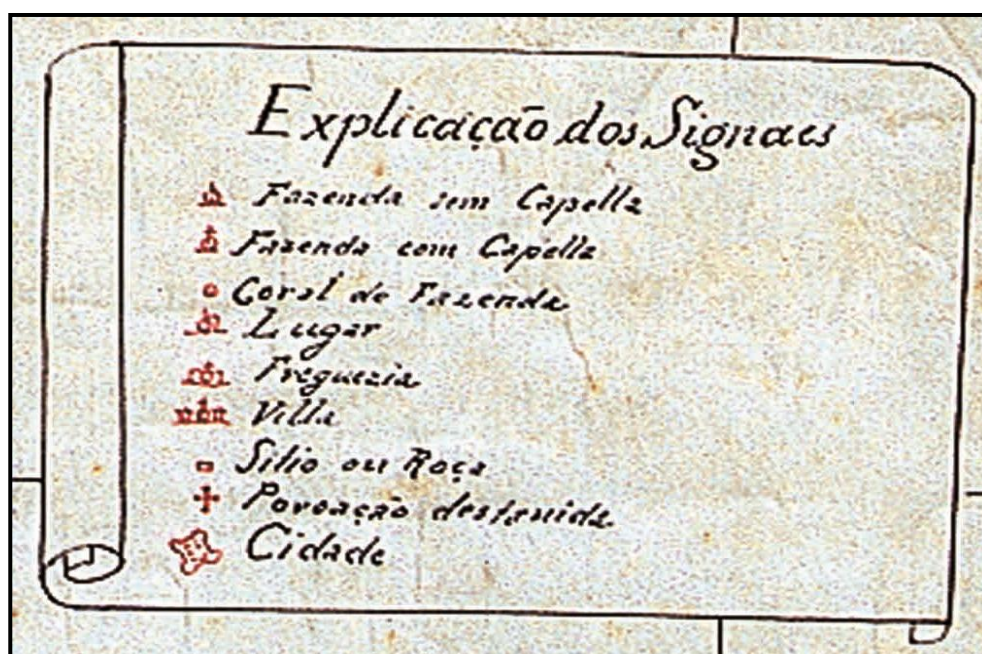 Explicação dos Signaes
Fazenda sem Capella
Fazenda com Capella
Coral de Fazenda
Lugar
Freguezia
Villa
Sitio ou Roça
Povoação destruida
Cidade